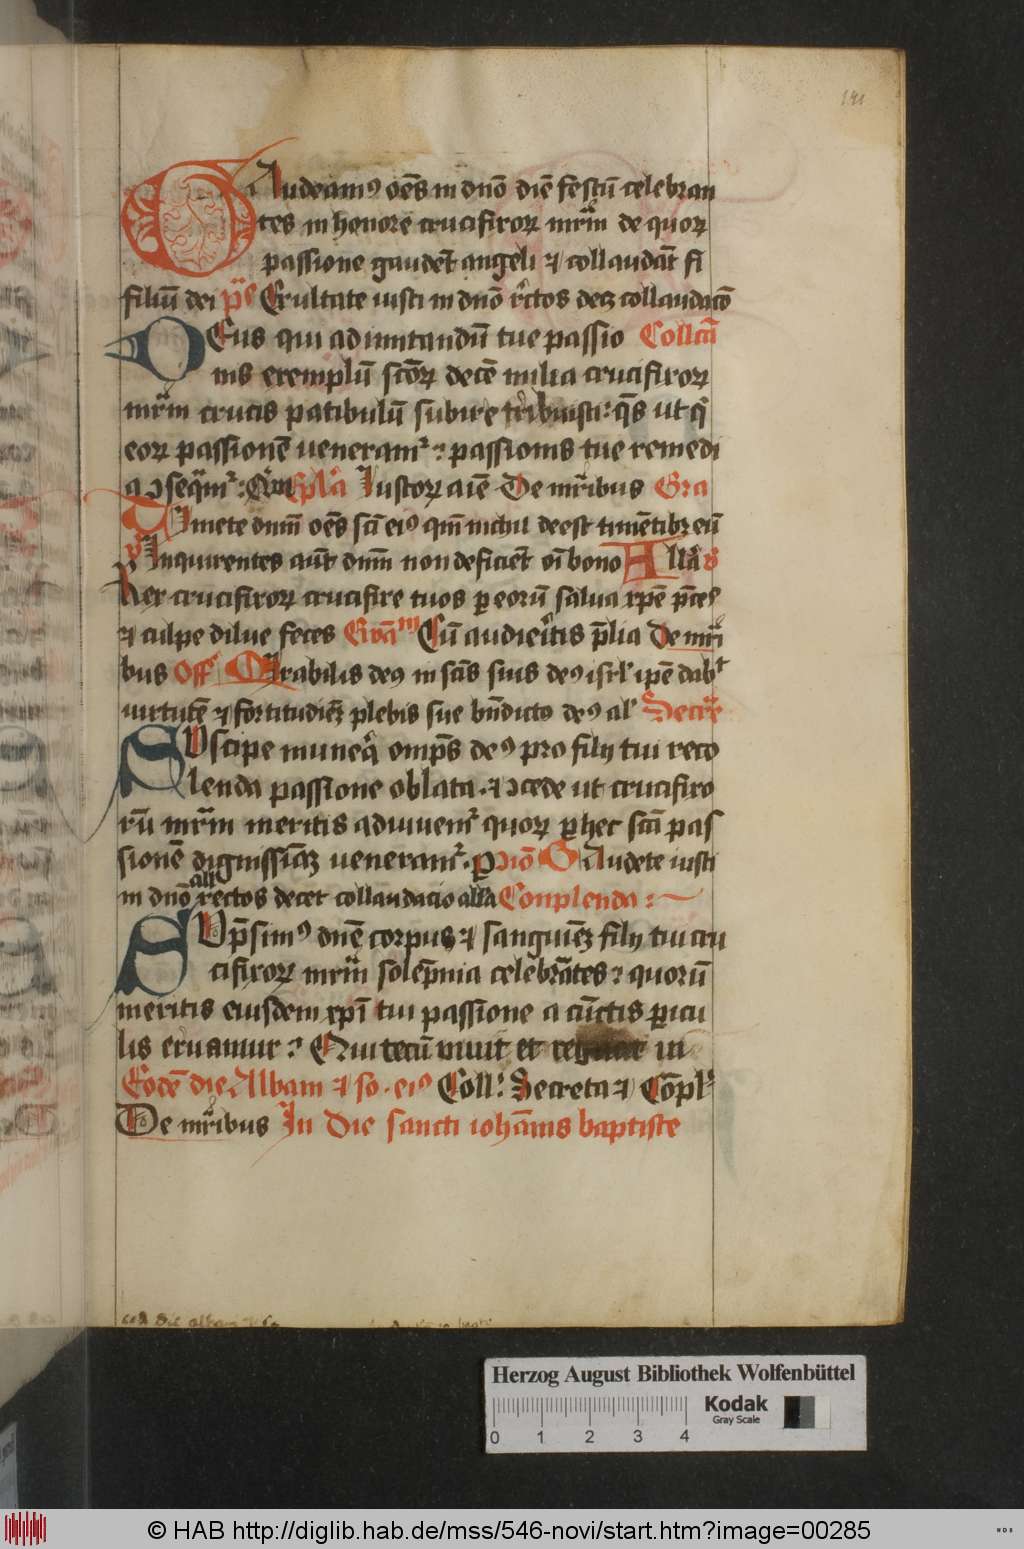 141
GAudeamꝰ oēs in dnō diē festū celebran
tes in honorē crucifixoꝝ mr̄m de quoꝝ
passione gaudēt angeli ⁊ collaudāt fi
filiū dei pˢ Exultate iusti in dnō rc̄tos decꝫ collaudacō
DEus qui ad imitandū tue passio Collcā
nis exemplū sctōꝝ decē milia crucifixoꝝ
mr̄m crucis patibulū subire tribuisti: qs̄ ut qⁱ
eoꝝ passionē veneramʳ: passionis tue remedi
a ꝯseqmʳ: Epl̓a Iustoꝝ aīe De mr̄ibus Gra
Timete dnm̄ oēs sc̄i eiꝰ qm̄ nichil deest timētibꝫ eū
v̓ Inquirentes aūt dnm̄ non deficiēt oī bono Alla v̓
Rex crucifixoꝝ crucifixe tuos ꝑ eorū salua xp̄e pc̄es
⁊ culpe dilue feces Ewā Cū audieritis p̄lia De mr̄i
bus Off Mirabilis deꝰ in scīs suis deꝰ isrl̓ ip̄e dabᵗ
virtutē ⁊ fortitudiēꝫ plebis sue bn̄dicto deꝰ al̓ Secre
SUscipe muneᵃ omp̄s deꝰ pro filij tui reco
lenda passione oblata ⁊ ꝯcede ut crucifixo
rū mr̄m meritis adiuuemʳ quoꝝ ꝑ hec sc̄ā pas
sionē dignissiāꝫ veneramʳ. ꝑ Cōiō GAudete iusti
in dnō all̓ rectos decet collaudacio alla Conplenda:
SUp̄simꝰ dnē corpus ⁊ sanguiēꝫ filij tui cru
cifixoꝝ mr̄m solēpnia celebrātes: quorū
meritis eiusdem xp̄i tui passione a cūctis ꝑicu
lis eruamur: Qui tecū viuit et regnat in
Eodē die Albani ⁊ so. eiꝰ Coll̓ Secreta ⁊ Cōpl̓
De mr̄ibus In die sancti iohānis baptiste
Herzog August Bibliothek Wolfenbüttel
Kodak
Gray Scale
0 1 2 3 4
© HAB http://diglib.hab.de/mss/546-novi/start.htm?image=00285